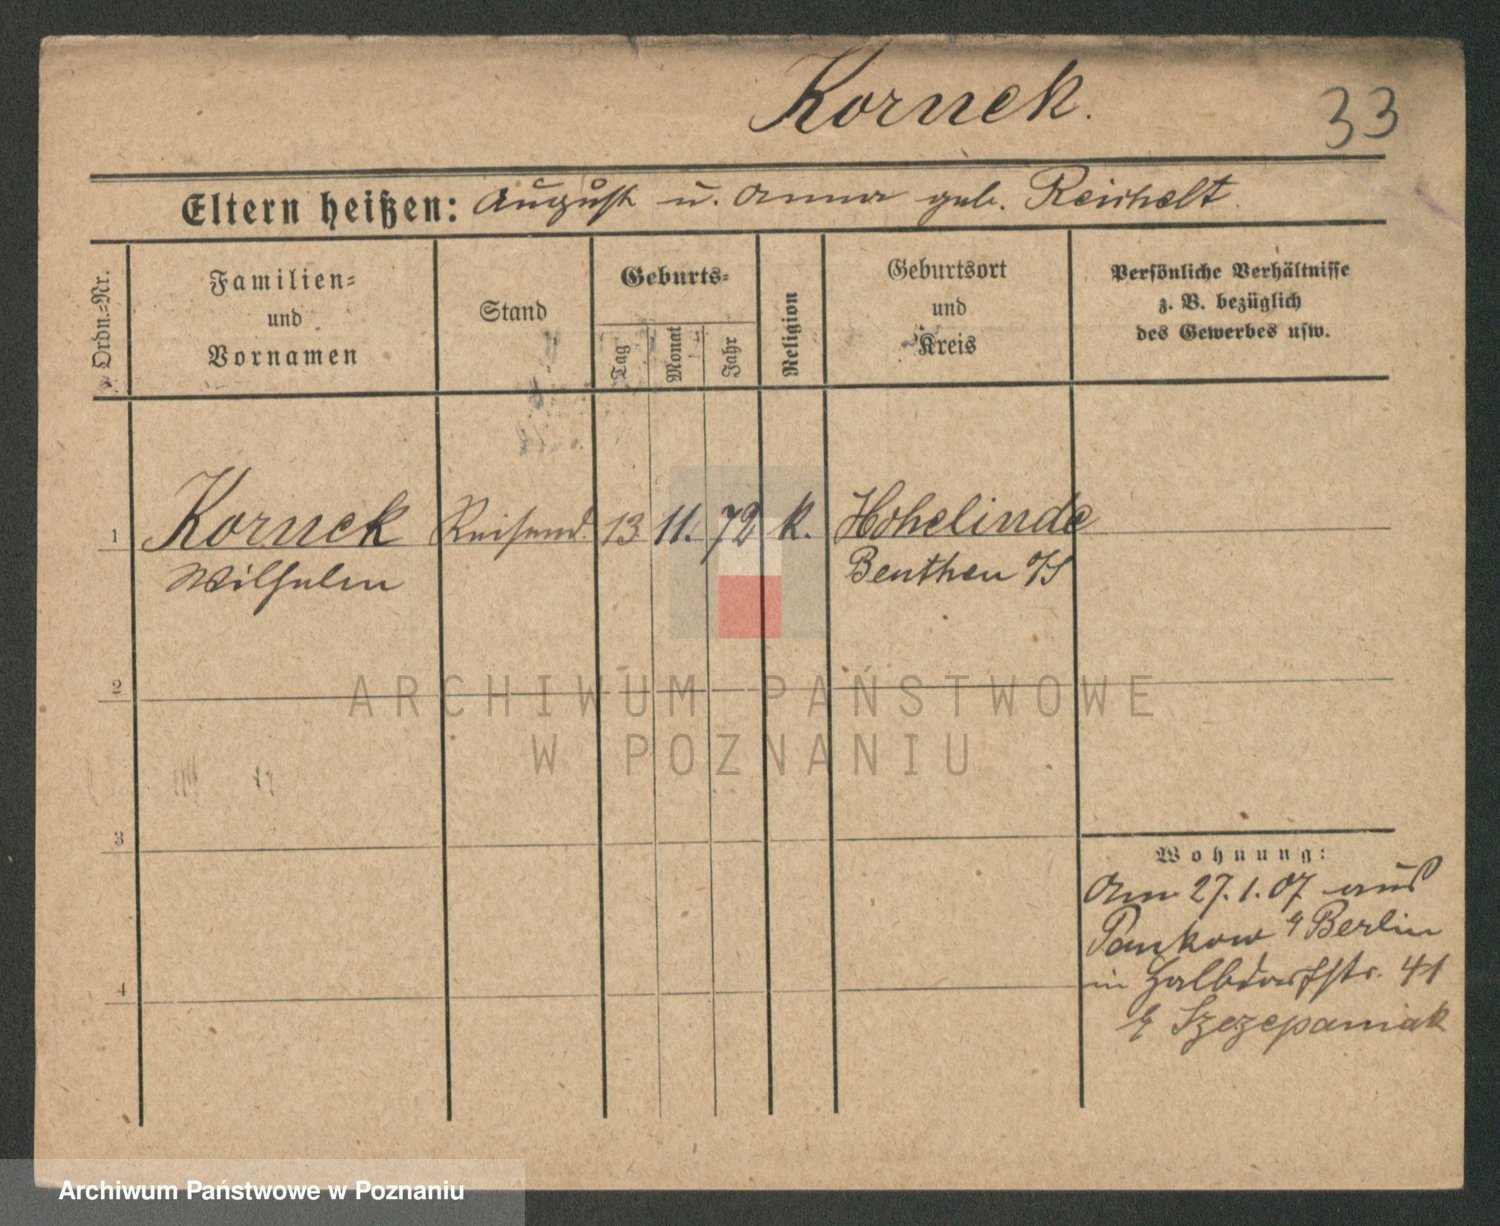 Kornek.
33
Eltern heißen: August u. Anna geb. Reichelt.
Ordn.-Nr.
Familien-
und
Vornamen
Stand
Geburts-
Tag
Monat
Jahr
Religion
Geburtsort
und
Kreis
Persönliche Verhältnisse
z. B. bezüglich
des Gewerbes usw.
1 Kornek Reisend. 13 11. 72 k. Hohelinde
Wilhelm Beuthen O/S
2
ARCHIWUM PAŃSTWOWE
W POZNANIU
3
Wohnung:
Am 27.1.07 aus
Pankow Berlin
4
in Halbdorfstr. 41
Szczepaniak
Archiwum Państwowe w Poznaniu